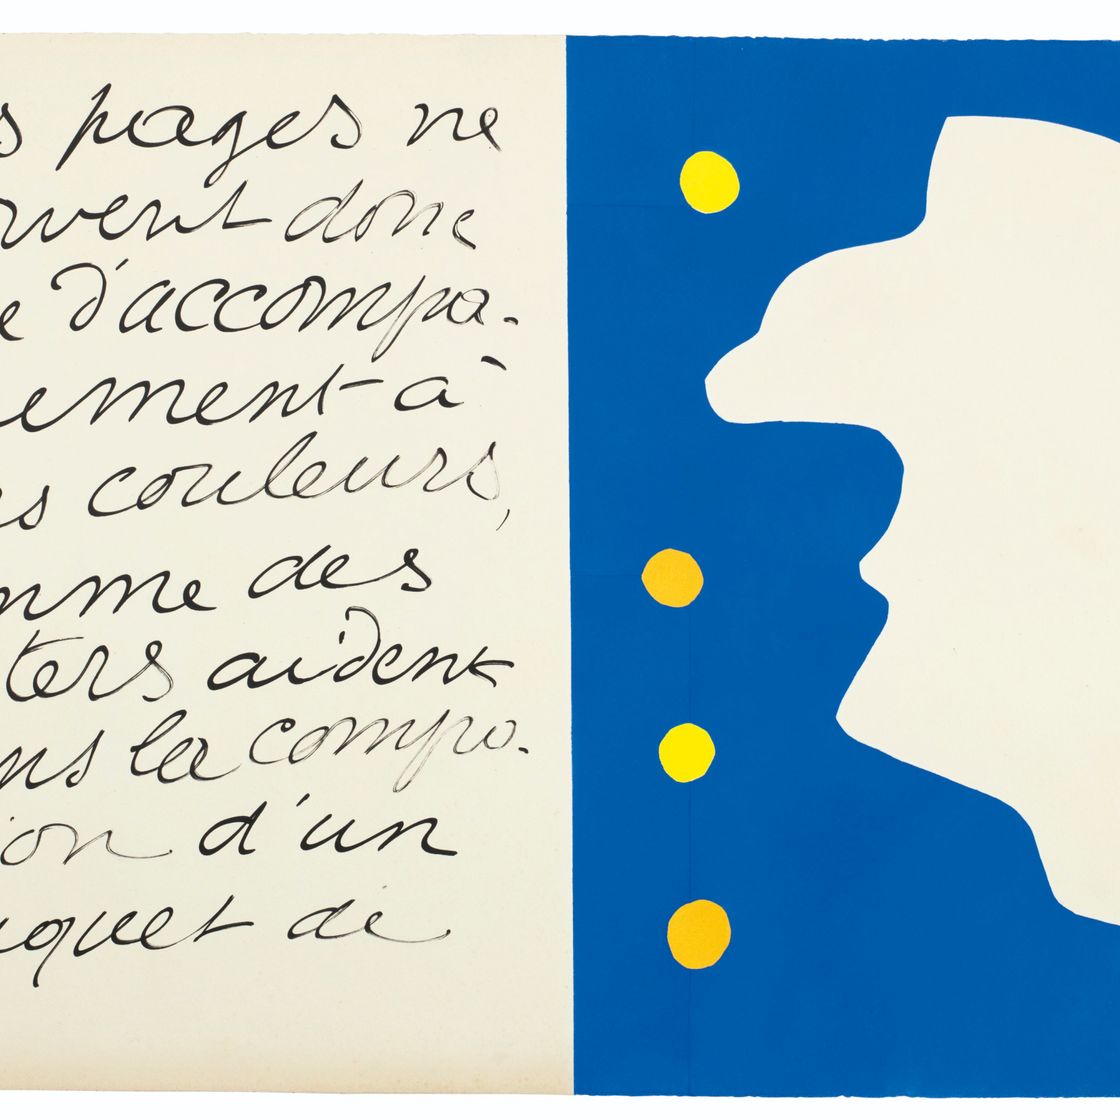 s pages ne
rvent donc
e d'accompa-
nement à
es couleurs,
mme des
ters aident
ns la compo-
ion d'un
uquet de